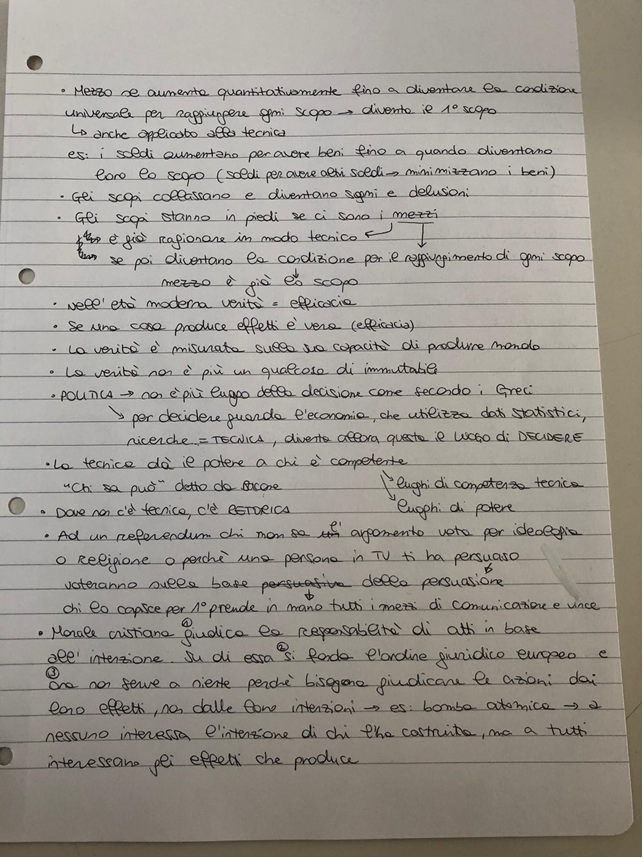 • Mezzo se aumenta quantitativamente fino a diventare la condizione
universale per raggiungere ogni scopo → diventa il 1° scopo
↳ anche applicato alla tecnica
es: i soldi aumentano per avere beni fino a quando diventano
loro lo scopo (soldi per avere altri soldi → minimizzano i beni)
• Gli scopi collassano e diventano sogni e delusioni
• Gli scopi stanno in piedi se ci sono i mezzi
è già ragionare in modo tecnico ←
se poi diventano la condizione per il raggiungimento di ogni scopo
mezzo è già lo scopo
• nell'età moderna verità = efficacia
• Se una cosa produce effetti è vera (efficacia)
• La verità è misurata sulla sua capacità di produrre mondo
• La verità non è più un qualcosa di immutabile
• POLITICA → non è più luogo della decisione come secondo i Greci
↘ per decidere guarda l'economia, che utilizza dati statistici,
ricerche = TECNICA, diventa allora questa il LUOGO di DECIDERE
• La tecnica dà il potere a chi è competente
"Chi sa può" detto da Bacone ↘ luoghi di competenza tecnica
• Dove non c'è tecnica, c'è RETORICA ↘ luoghi di potere
• Ad un referendum chi non sa l'argomento vota per ideologia
o Religione o perchè una persona in TV ti ha persuaso
voteranno sulla base persuasiva della persuasione
chi lo capisce per 1° prende in mano tutti i mezzi di comunicazione e vince
• Morale cristiana ① giudica la responsabilità di atti in base
all'intenzione. Su di essa ② si fonda l'ordine giuridico europeo e
③ ora non serve a niente perchè bisogna giudicare le azioni dai
loro effetti, non dalle loro intenzioni → es: bomba atomica → a
nessuno interessa l'intenzione di chi l'ha costruita, ma a tutti
interessano gli effetti che produce